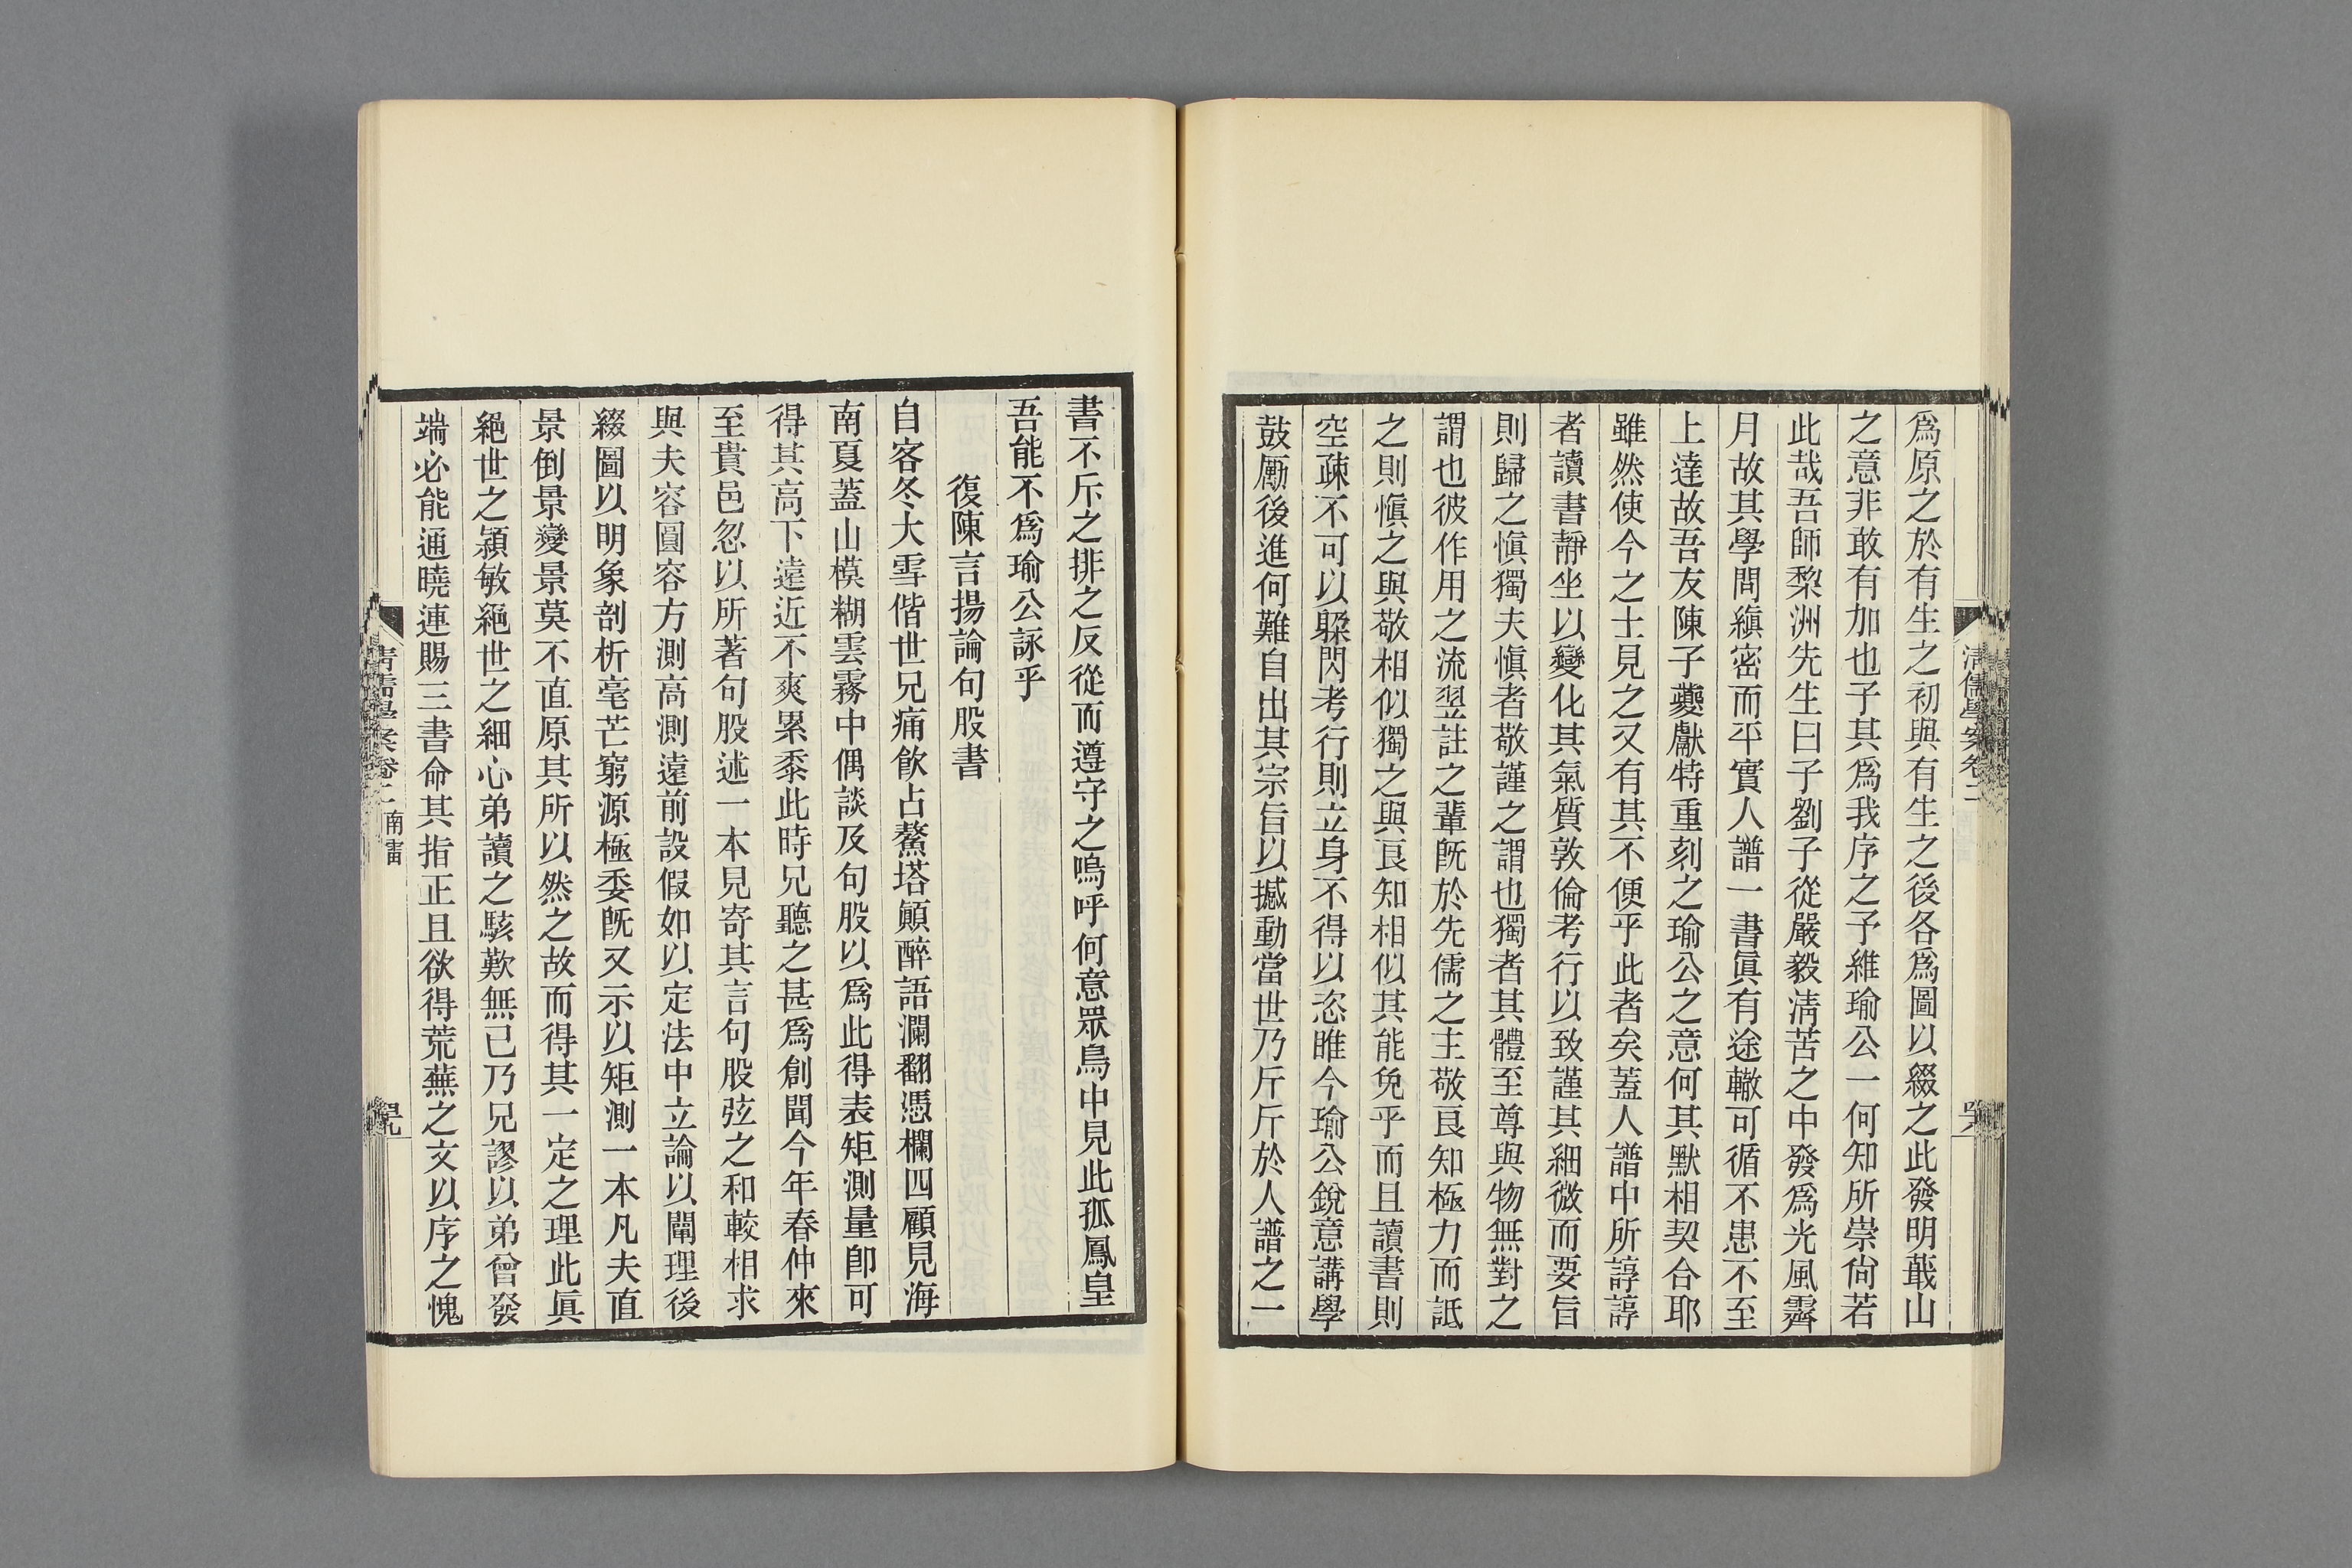 爲原之於有生之初與有生之後各爲圖以綴之此發明蕺山
之意非敢有加也子其爲我序之予維瑜公一何知所崇尙若
此哉吾師棃洲先生曰子劉子從嚴毅淸苦之中發爲光風霽
月故其學問縝密而平實人譜一書眞有途轍可循不患不至
上達故吾友陳子夔獻特重刻之瑜公之意何其默相契合耶
雖然使今之士見之又有其不便乎此者矣蓋人譜中所諄諄
者讀書靜坐以變化其氣質敦倫考行以致謹其細微而要旨
則歸之愼獨夫愼者敬謹之謂也獨者其體至尊與物無對之
謂也彼作用之流翌註之輩旣於先儒之主敬良知極力而詆
之則愼之與敬相似獨之與良知相似其能免乎而且讀書則
空疎不可以躲閃考行則立身不得以恣睢今瑜公銳意講學
鼓勵後進何難自出其宗旨以撼動當世乃斤斤於人譜之一
清儒學案卷二
書不斥之排之反從而遵守之嗚呼何意眾鳥中見此孤鳳皇
吾能不爲瑜公詠乎
復陳言揚論句股書
自客冬大雪偕世兄痛飮占鰲塔顚醉語瀾翻憑欄四顧見海
南夏蓋山模糊雲霧中偶談及句股以爲此得表矩測量卽可
得其高下遠近不爽累黍此時兄聽之甚爲創聞今年春仲來
至貴邑忽以所著句股述一本見寄其言句股弦之和較相求
與夫容圓容方測高測遠前設假如以定法中立論以闡理後
綴圖以明象剖析毫芒窮源極委旣又示以矩測一本凡夫直
景倒景變景莫不直原其所以然之故而得其一定之理此眞
絕世之穎敏絕世之細心弟讀之駭歎無已乃兄謬以弟曾發
端必能通曉連賜三書命其指正且欲得荒蕪之文以序之愧
清儒學案卷二 南雷